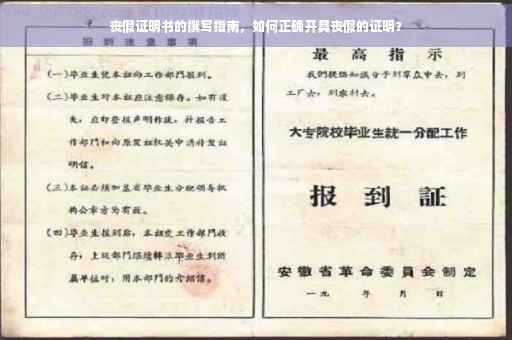 丧假证明书的撰写指南，如何正确开具丧假的证明？
报到注意事项
(一)毕业生凭本证向工作部门报到。
(二)毕业生对本证应注意保存。如有遗
失，应即登报声明作废，并报告工
作部门和向原发证机关申请补发证
明信。
(三)本证必须加盖省毕业生分配领导机
构公章方为有效。
(四)毕业生报到后，本证交工作部门收
存；上级部门继续转派毕业生到所
属单位时，用本部门的介绍信。
最高指示
我们提倡知识分子到群众中去，到
工厂去，到农村去。
大专院校毕业生统一分配工作
报到証
安徽省革命委員会制定
一九 年 月 日